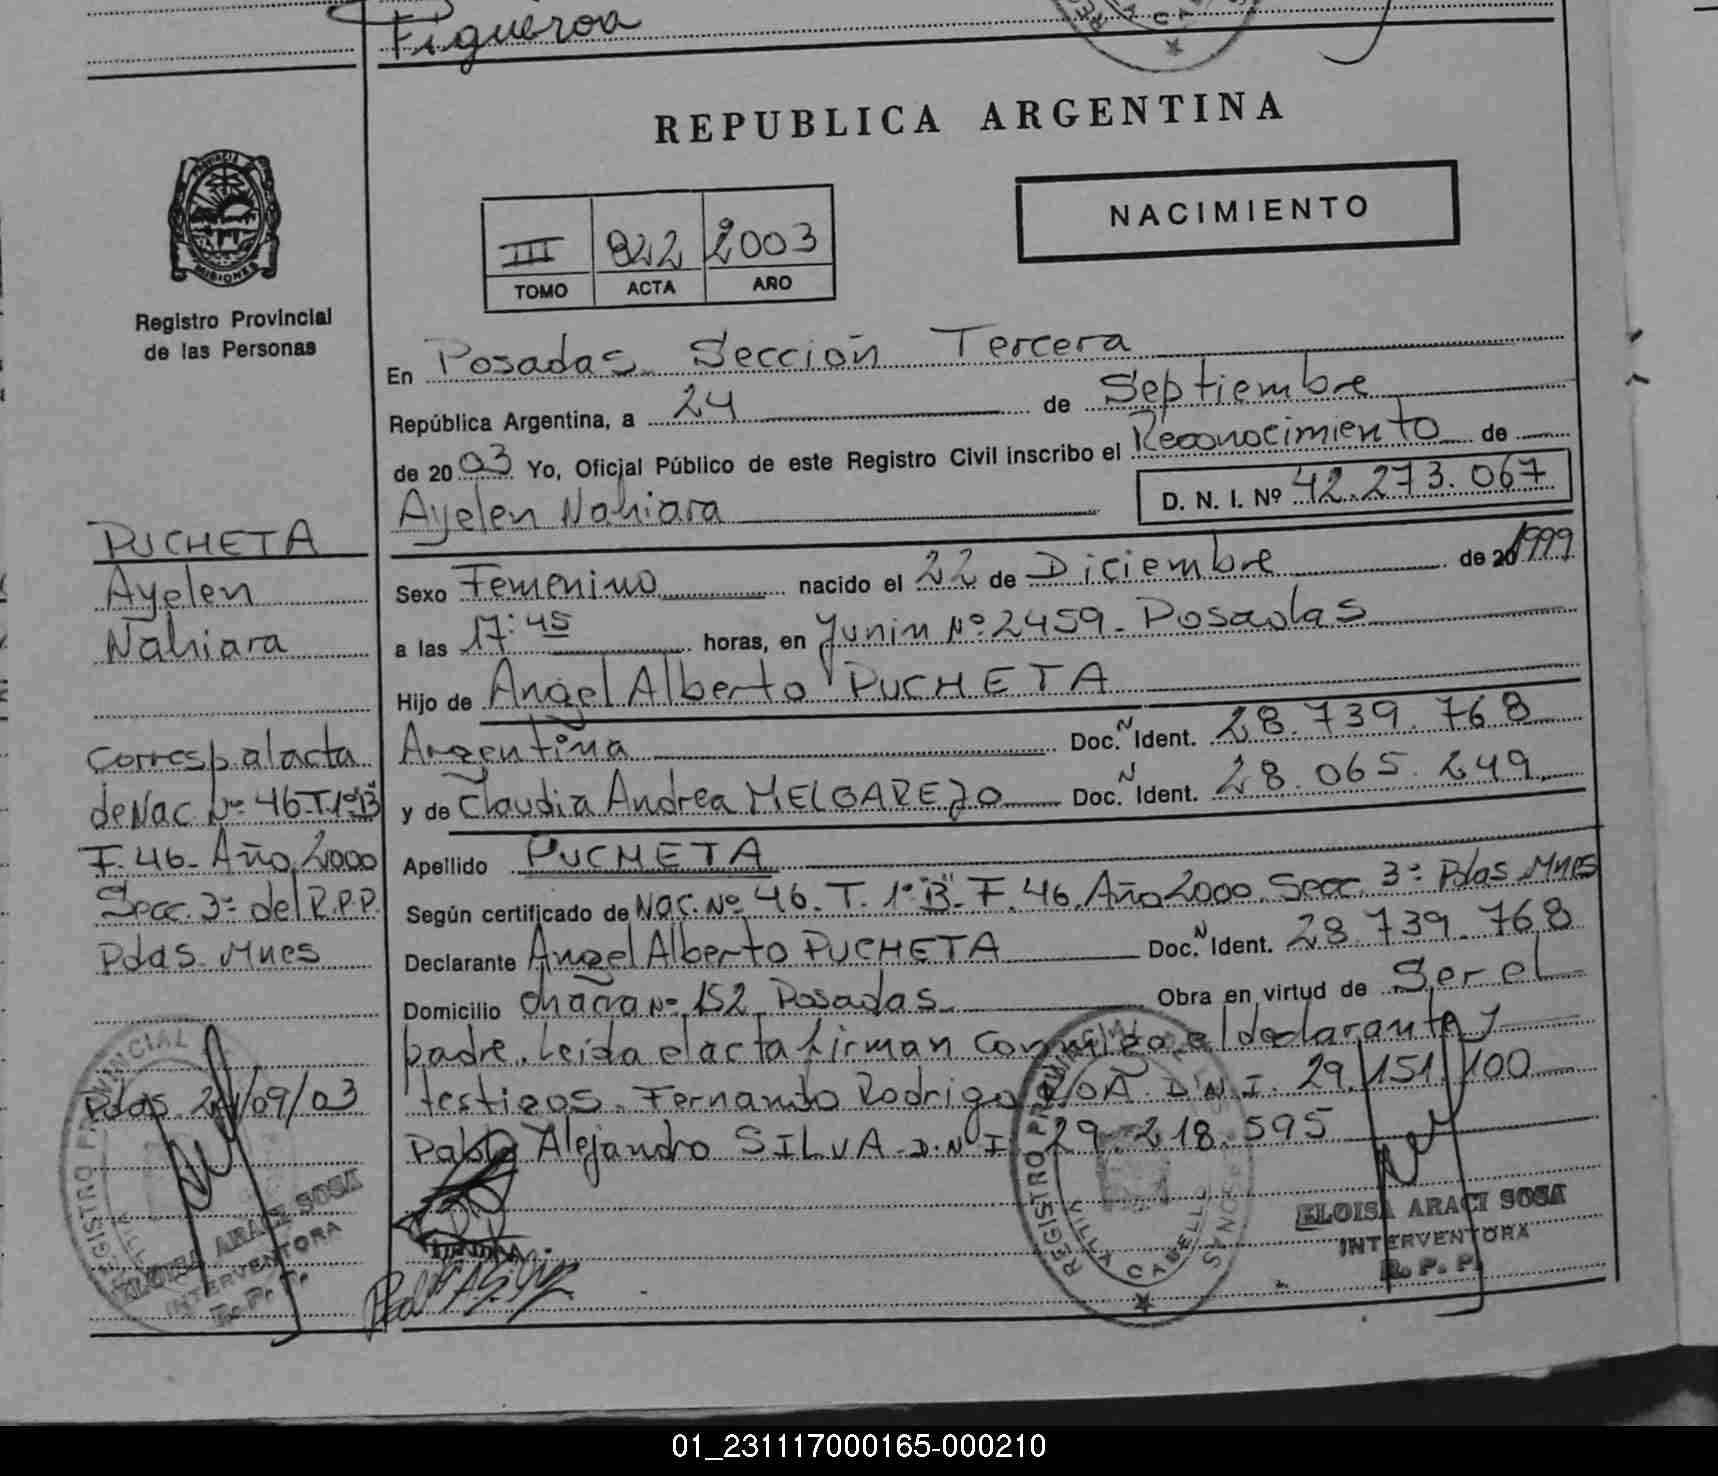 Figueroa
REPUBLICA ARGENTINA
NACIMIENTO
III 822 2003
TOMO ACTA AÑO
PROVINCIA DE
MISIONES
Registro Provincial
de las Personas
En Posadas Sección Tercera
República Argentina, a 24 de Septiembre
de 2003 Yo, Oficial Público de este Registro Civil inscribo el Reconocimiento de
Ayelen Nahiara D. N. I. Nº 42.273.067
Sexo Femenino nacido el 22 de Diciembre de 20 1999
a las 17:45 horas, en Junin Nº 2459 - Posadas
Hijo de Angel Alberto PUCHETA
Argentina Doc. N Ident. 28.739.768
y de Claudia Andrea MELGAREJO Doc. N Ident. 28.065.249
Apellido PUCHETA
Según certificado de Nac. Nº 46. T. 1º "B" F. 46. Año 2000. Secc. 3º Pdas Mnes
Declarante Angel Alberto PUCHETA Doc. N Ident. 28.739.768
Domicilio chacra Nº 152 Posadas Obra en virtud de Ser el
padre. Leida el acta firman conmigo el declarante y
testigos. Fernando Rodrigo D.N.I. 29.151.100
Pablo Alejandro SILVA D.N.I. 29.218.595
PUCHETA
Ayelen
Nahiara
Corresp al acta
de Nac. Nº 46-T.1º"B"
F. 46- Año 2000
Secc. 3º del R.P.P.
Pdas Mnes
Pdas 24/09/03
REGISTRO PROVINCIAL
ELOISA ARACI SOSA
INTERVENTORA
R. P. P.
REGISTRO PROVINCIAL
VILLA CABELLO
ELOISA ARACI SOSA
INTERVENTORA
R. P. P.
01_231117000165-000210